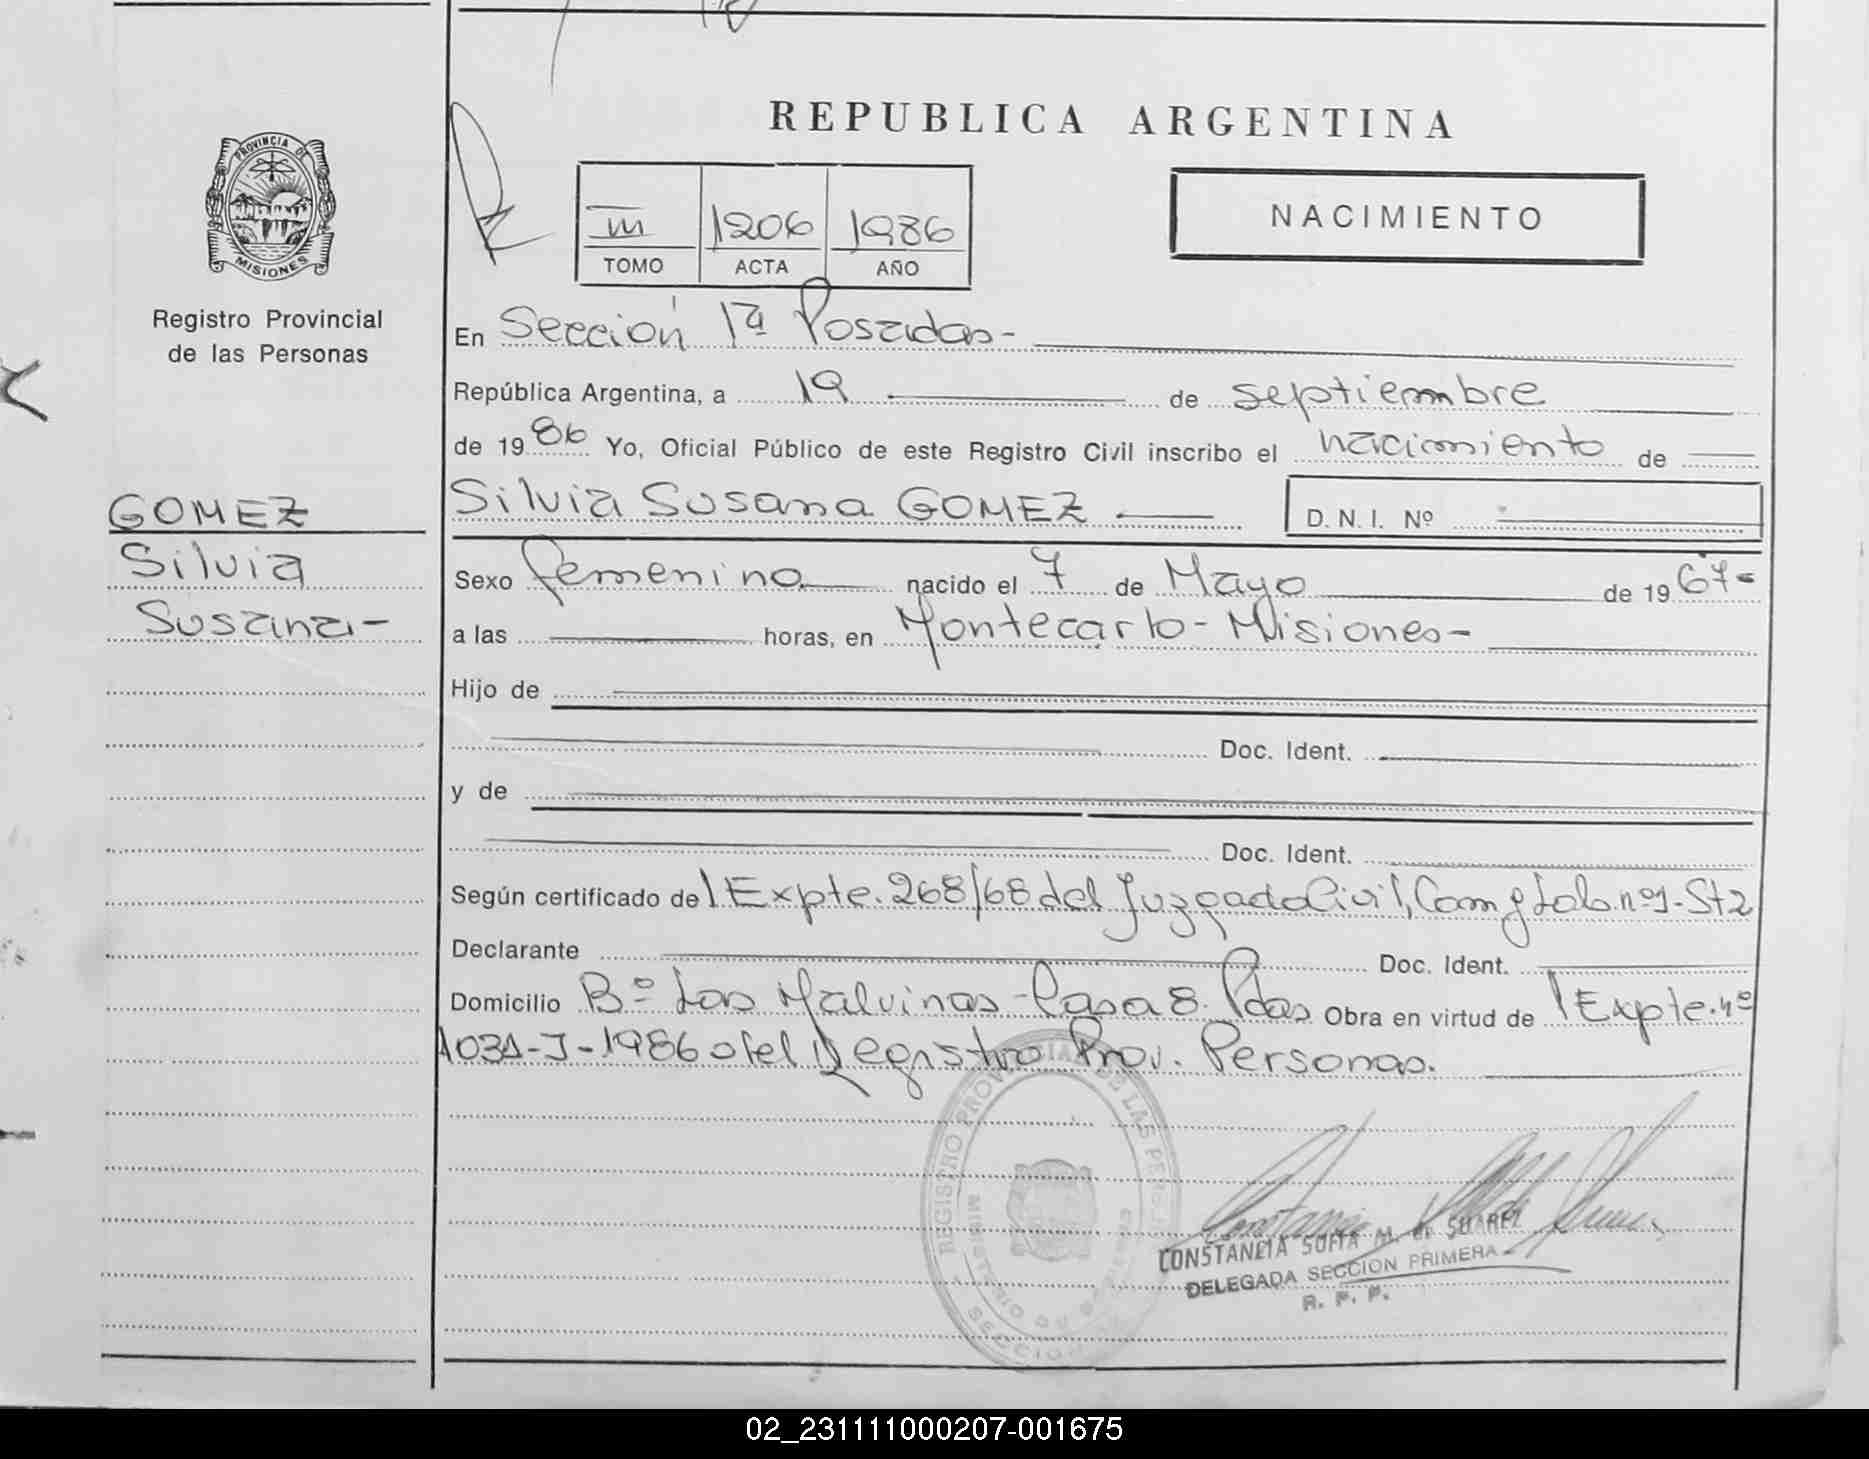 REPUBLICA ARGENTINA
PROVINCIA DE
MISIONES
Registro Provincial
de las Personas
III 1206 1986
TOMO ACTA AÑO
NACIMIENTO
En Sección 1ª Posadas-
República Argentina, a 19 de septiembre
de 1986 Yo, Oficial Público de este Registro Civil inscribo el nacimiento de
GOMEZ
Silvia
Susana-
Silvia Susana GOMEZ D.N.I. Nº
Sexo femenino nacido el 7 de Mayo de 1967=
a las horas, en Montecarlo-Misiones-
Hijo de
Doc. Ident.
y de
Doc. Ident.
Según certificado de l Expte. 268/68 del Juzgado Civil, Com y Lab. nº1-St2
Declarante Doc. Ident.
Domicilio Bº Las Malvinas-Casa 8. Pdas Obra en virtud de l Expte. nº
1031-J-1986 del Registro Prov. Personas.
REGISTRO PROVINCIAL DE LAS PERSONAS
CONSTANCIA SOFIA M. de SUAREZ
DELEGADA SECCION PRIMERA
R. P. P.
02_231111000207-001675